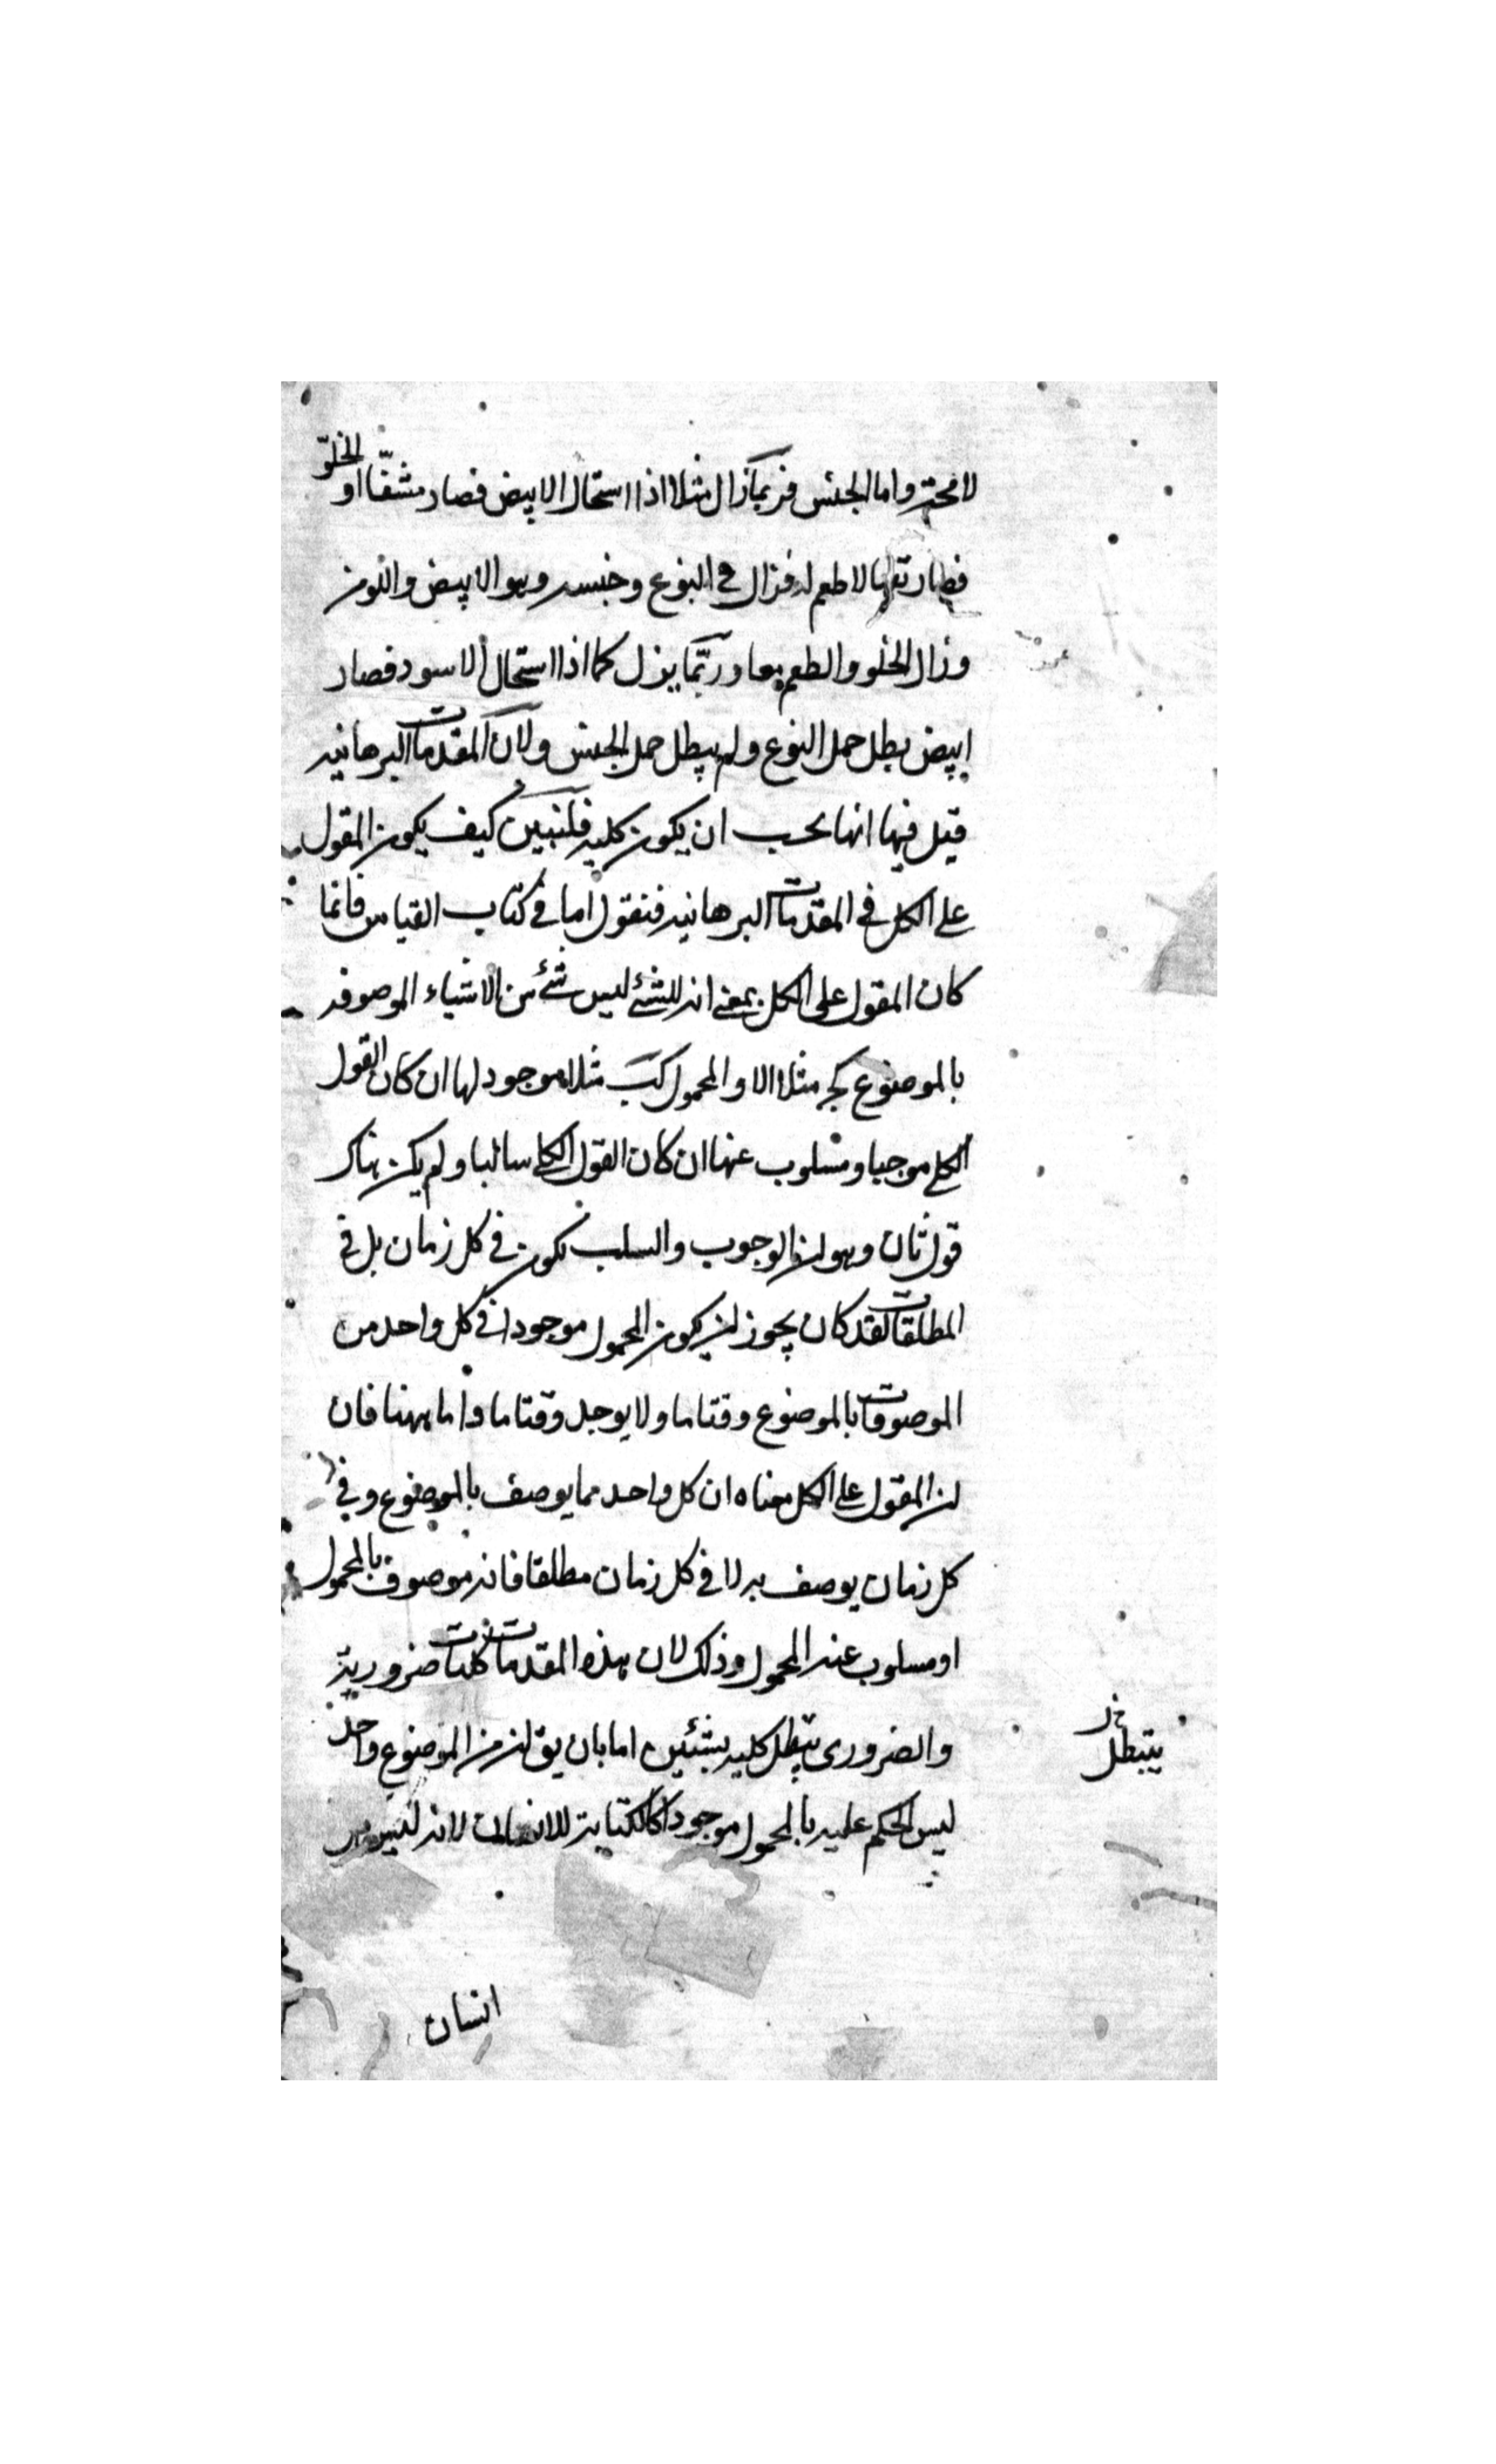 لا محة واما الجنس فربما زال مثلا اذا استحال الابيض فصار مشفّا او الحلو
فصار تفها لا طعم له فزال في النوع وجنسه وهو الابيض واللون
وزال الحلو والطعم معا وربّما يزل كما اذا استحال الاسود فصار
ابيض بطل حمل النوع ولم يبطل حمل الجنس ولان المقدمات البرهانيه
قيل فيها انها يحب ان يكون كليه فلنبين كيف يكون المقول
على الكل في المقدمات البرهانيه فنقول اما في كتاب القياس فانما
كان المقول على الكل بمعنى انه للشئ ليس شئ من الاشياء الموصوفه
بالموضوع كج مثلا الا والمحمول كب مثلا موجود لها ان كان القول
الكلي موجبا ومسلوب عنها ان كان القول الكلي سالبا ولم يكن هناك
قول ثان وهو ان الوجوب والسلب يكون في كل زمان بل في
المطلقات لقد كان يجوز ان يكون المحمول موجودا في كل واحد من
الموصوفات بالموضوع وقتا ما ولا يوجد وقتا ما واما ههنا فان
ان المقول على الكل معناه ان كل واحد مما يوصف بالموضوع وفي
كل زمان يوصف به لا في كل زمان مطلقا فانه موصوف بالمحمول
او مسلوب عنه المحمول وذلك لان هذه المقدمات كليات ضرورية
والضرورى يبطل كليه بشئين اما بان يق ان من الموضوع واحد
ليس الحكم عليه بالمحمول موجودا كالكتابة للانسان لانه ليس
يتبطل
انسان